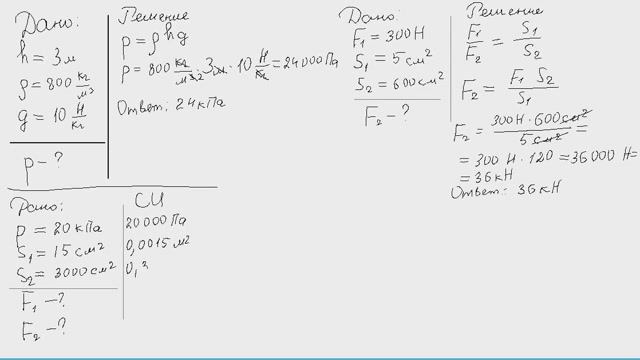 Дано:
h = 3 м
ρ = 800 кг/м³
g = 10 Н/кг
p - ?
Решение
p = ρhg
p = 800 кг/м³ · 3м · 10 Н/кг = 24000 Па
Ответ: 24 кПа
Дано:
F₁ = 300 Н
S₁ = 5 см²
S₂ = 600 см²
F₂ - ?
Решение
F₁/F₂ = S₁/S₂
F₂ = F₁ S₂/S₁
F₂ = 300Н · 600см²/5см² =
= 300 Н · 120 = 36000 Н =
= 36 кН
Ответ: 36 кН
Дано:
p = 20 кПа
S₁ = 15 см²
S₂ = 3000 см²
F₁ - ?
F₂ - ?
СИ
20000 Па
0,0015 м²
0,3